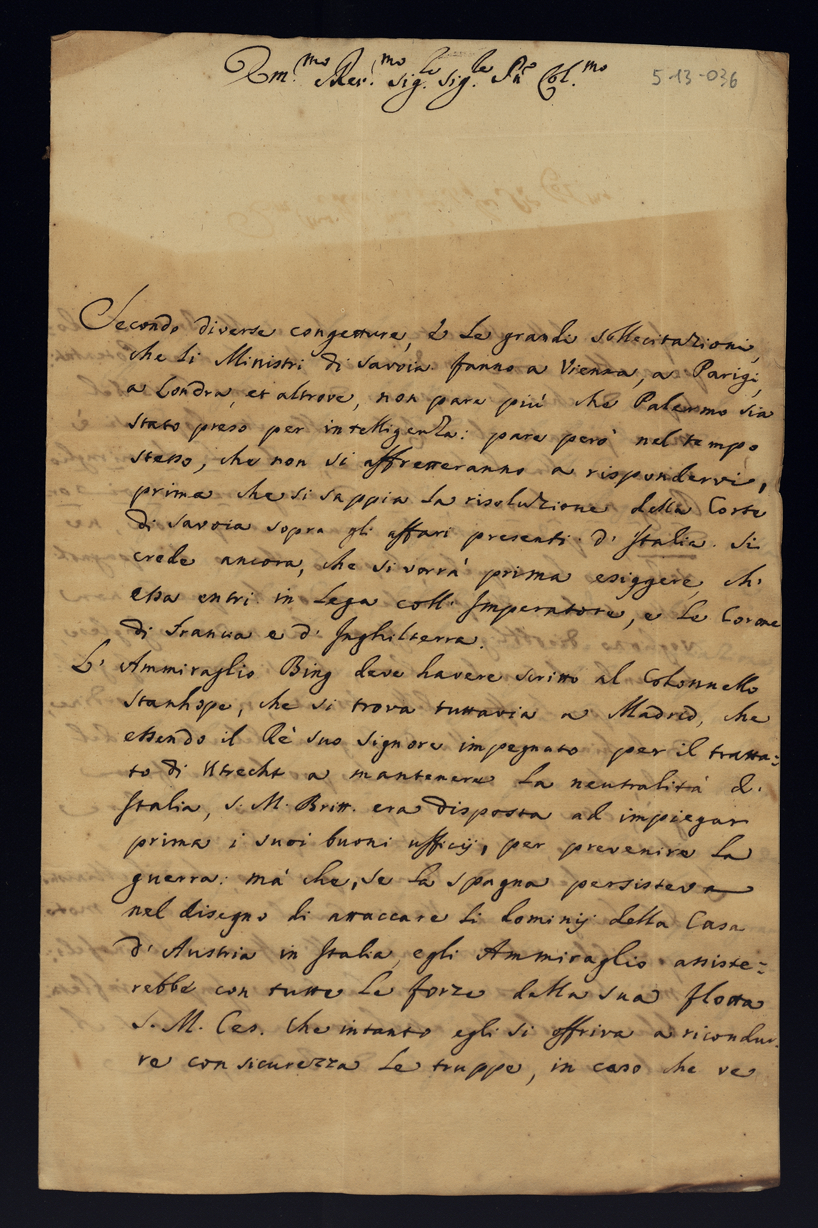 Em.mo Rev.mo Sig.le Sig.le P.ne Col.mo
5-13-036
Secondo diverse congetture, è le grandi sollecitazioni,
che li Ministri di Savoia fanno a Vienna, a Parigi,
a Londra, et altrove, non pare più che Palermo sia
stato preso per intelligenza: pare però nel tempo
stesso, che non si affretteranno a rispondervi,
prima che si sappia la risoluzione della Corte
di Savoia sopra gli affari presenti d' Italia. Si
crede ancora, che si vorrà prima esiggere, ch'
essa entri in Lega coll' Imperatore, e le Corone
di Francia e d' Inghilterra.
L' Ammiraglio Bing deve havere scritto al Colonnello
Stanhope, che si trova tuttavia a Madrid, che
essendo il Rè suo Signore impegnato per il tratta=
to di Utrecht a mantenere la neutralità d'
Italia, S. M. Britt. era disposta ad impiegar
prima i suoi buoni ufficij, per prevenire la
guerra: mà che, se la Spagna persisteva
nel disegno di attaccare li dominij della Casa
d' Austria in Italia, egli Ammiraglio assiste=
rebbe con tutte le forze della sua flotta
S. M. Ces. Che intanto egli si offriva a ricondur=
re con sicurezza le truppe, in caso che ve